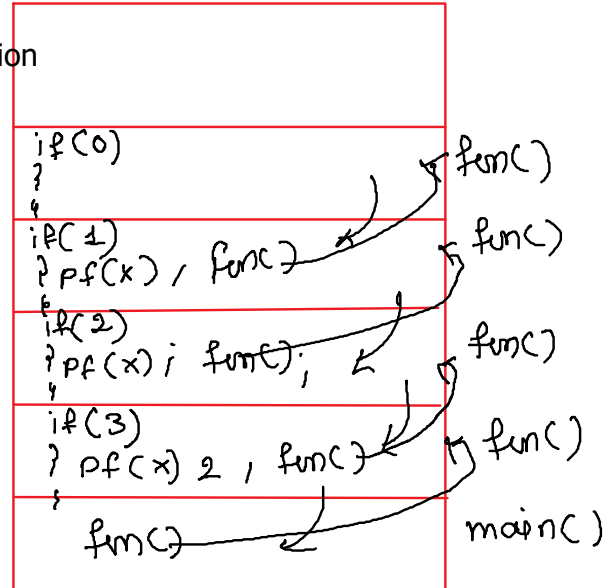 ion
if(0)
{
}
fun()
if(1)
{ pf(x), fun()
}
fun()
if(2)
{ pf(x); fun();
}
fun()
if(3)
{ pf(x) 2, fun()
}
fun()
fun()
main()